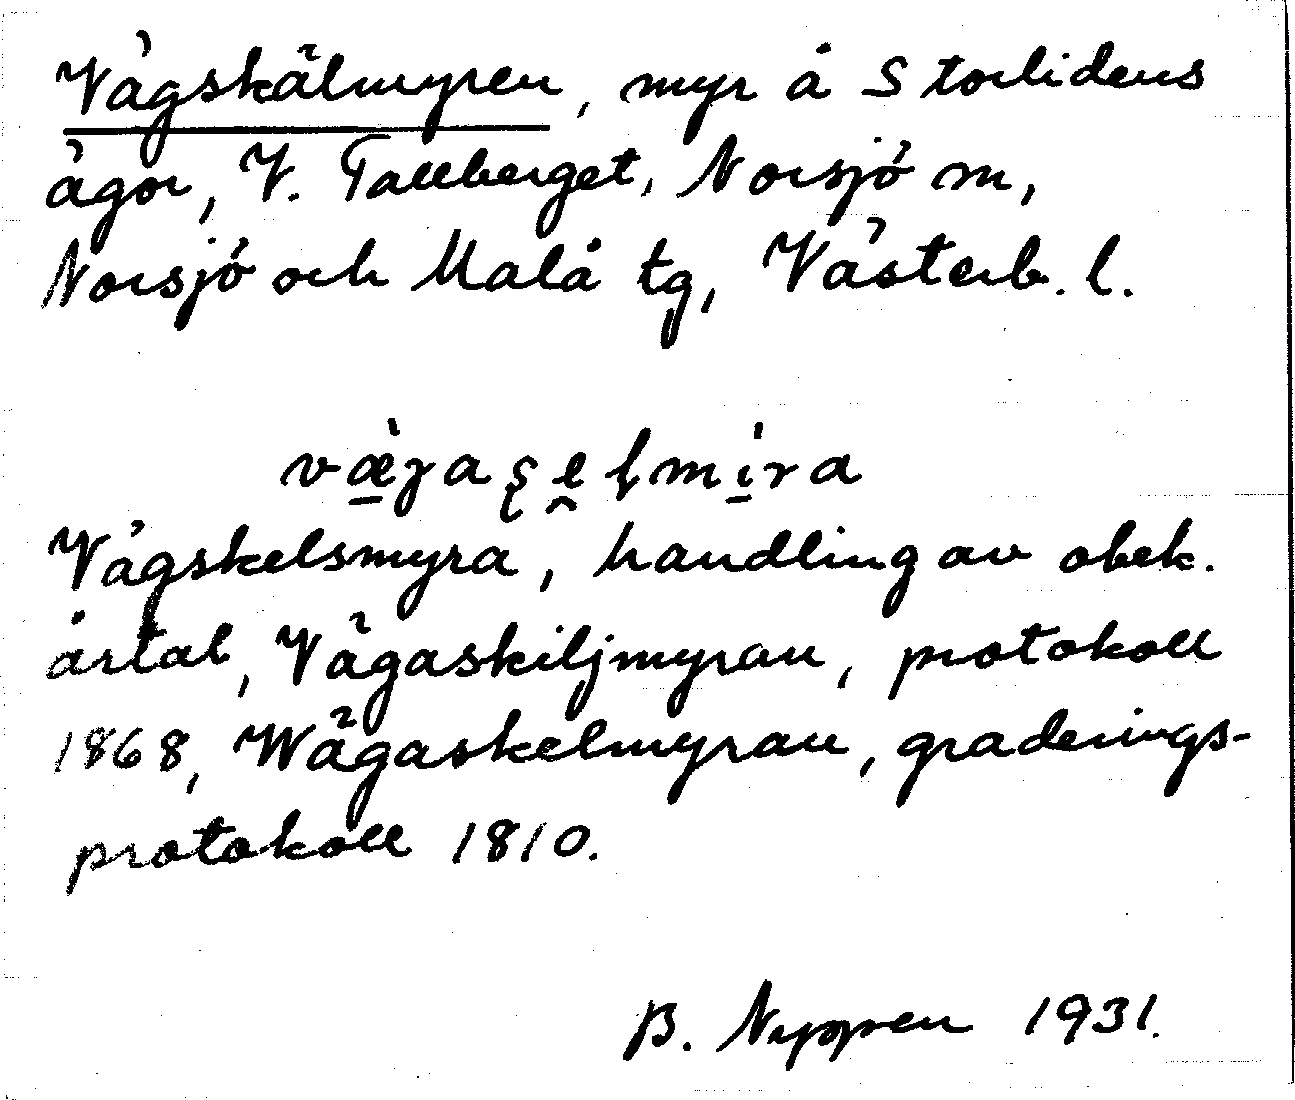 Vägskälmyren, myr å Storlidens
ägor, V. Tallberget, Norsjö sn,
Norsjö och Malå tg, Västerb. l.
Vägskelsmyra, handling av obek.
årtal, Vägaskiljmyran, protokoll
1868, Wägaskelmyran, graderings-
protokoll 1810.
B. 1931.